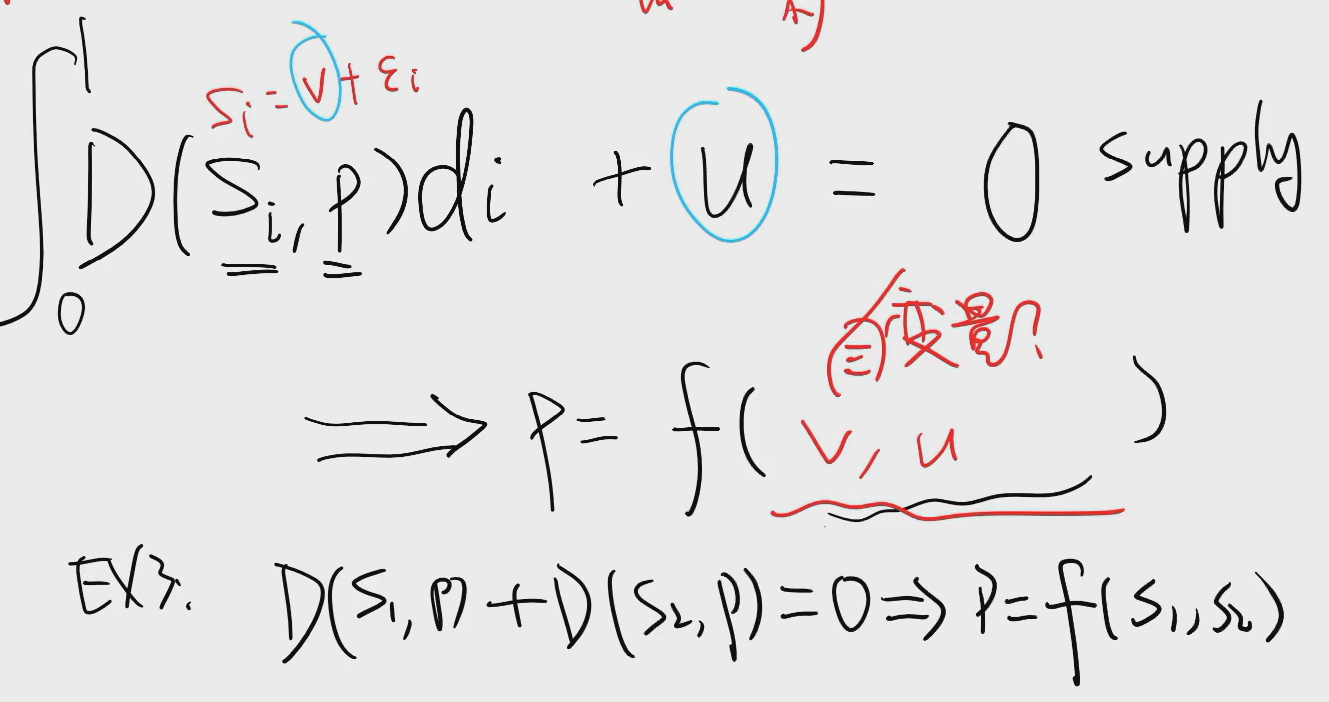 Si = v + εi
∫₀¹ D(Si, p)di + u = 0 supply
自变量?
⇒ p = f( v, u )
EX3. D(S1, p) + D(S2, p) = 0 ⇒ p = f(S1, S2)